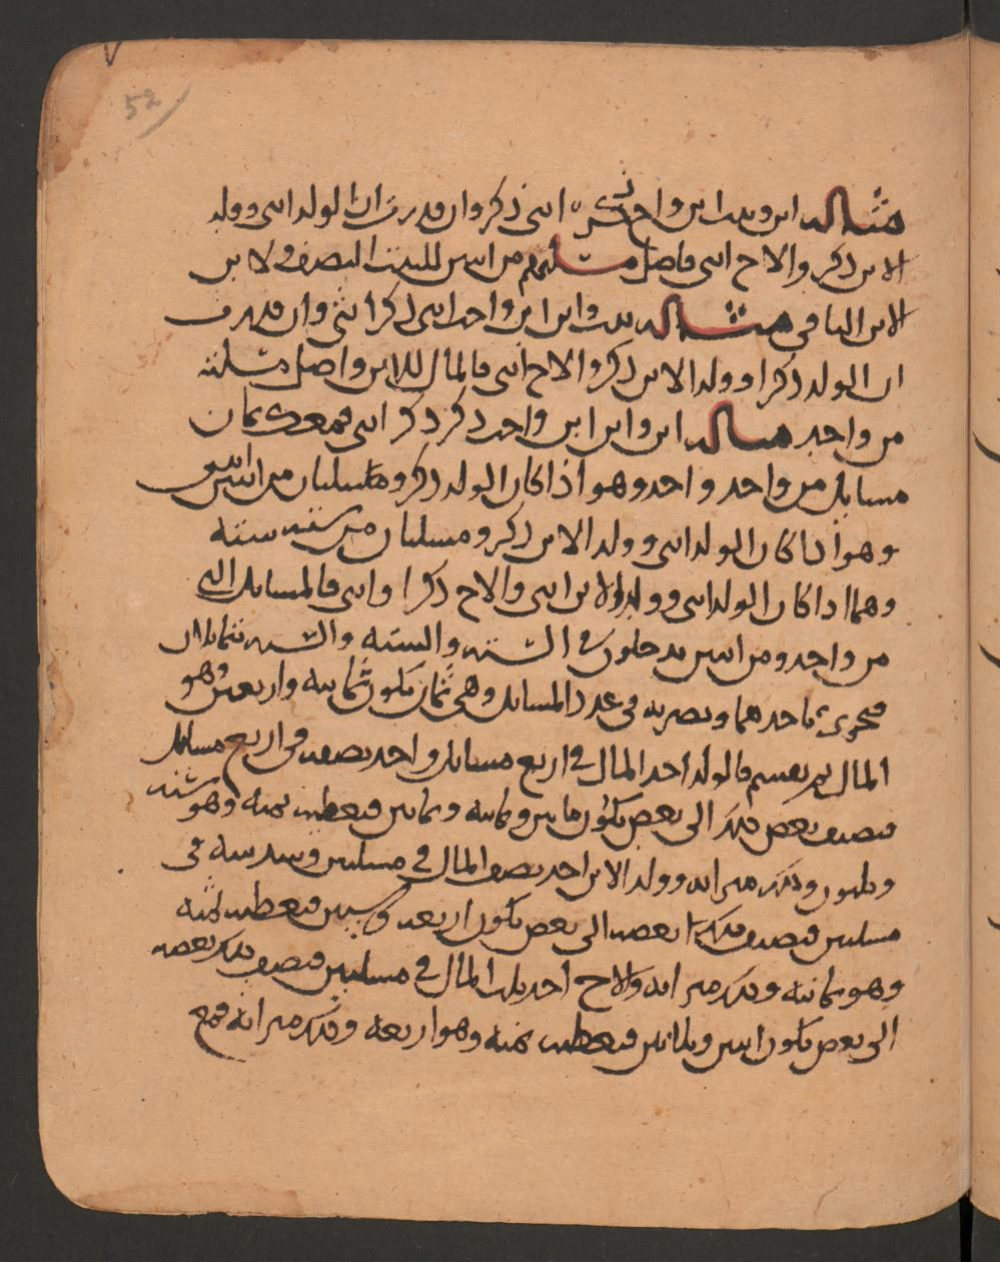 52
مثاله ابن وبنت ابن واخ ذكر انثى ذكر وان قدرت ان الولد انثى وولد
الابن ذكر والاخ انثى فاصل مسئلتهم من اثنين للبنت النصف ولابن
الابن الباقي مثاله بنت وابن ابن واخت انثى ذكر انثى وان قدرت
ان الولد ذكرا وولد الابن ذكر والاخ انثى فالمال للابن واصل مسئلته
من واحد مثاله ابن وابن ابن واخت ذكر ذكر انثى فمعك ثمان
مسايل من واحد واحد وهو اذا كان الولد ذكر ومسلتان من اثنين اثنين
وهو اذا كان الولد انثى وولد الابن ذكر ومسلتان من ستة ستة
وهما اذا كان الولد انثى وولد الابن انثى والاخ ذكرا وانثى فالمسايل التي
من واحد ومن اثنين يدخلون في الستة والستة والستة تتماثلان
فتجزي باحدهما وتضربه في عدد المسايل وهي ثمان تكون ثمانية واربعين وهو
المال ثم تقسم فالولد اخذ المال في اربع مسايل واخذ نصفه في اربع مسايل
فتضيف بعض ذلك الى بعض تكون مايتين وثمانية وثمانين فتعطيه ثمنه وهو ستة
وثلثون وذلك ميراثه وولد الابن اخذ نصف المال في مسلتين وسدسه في
مسلتين فتضيف ذلك بعضه الى بعض تكون اربعة وستين فتعطيه ثمنه
وهو ثمانية وذلك ميراثه والاخ اخذ ثلث المال في مسلتين فتضيف ذلك بعضه
الى بعض تكون اثنين وثلاثين فتعطيه ثمنه وهو اربعة وذلك ميراثه فمع